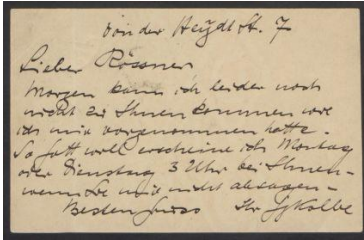 von der Heydt St. 7
Lieber Rössner
Morgen kann ich leider noch
nicht zu Ihnen kommen wie
ich mir vorgenommen hatte.
So Gott will erscheine ich Montag
oder Dienstag 3 Uhr bei Ihnen-
wenn Sie mir nicht absagen-
Besten Gruss Ihr GKolbe